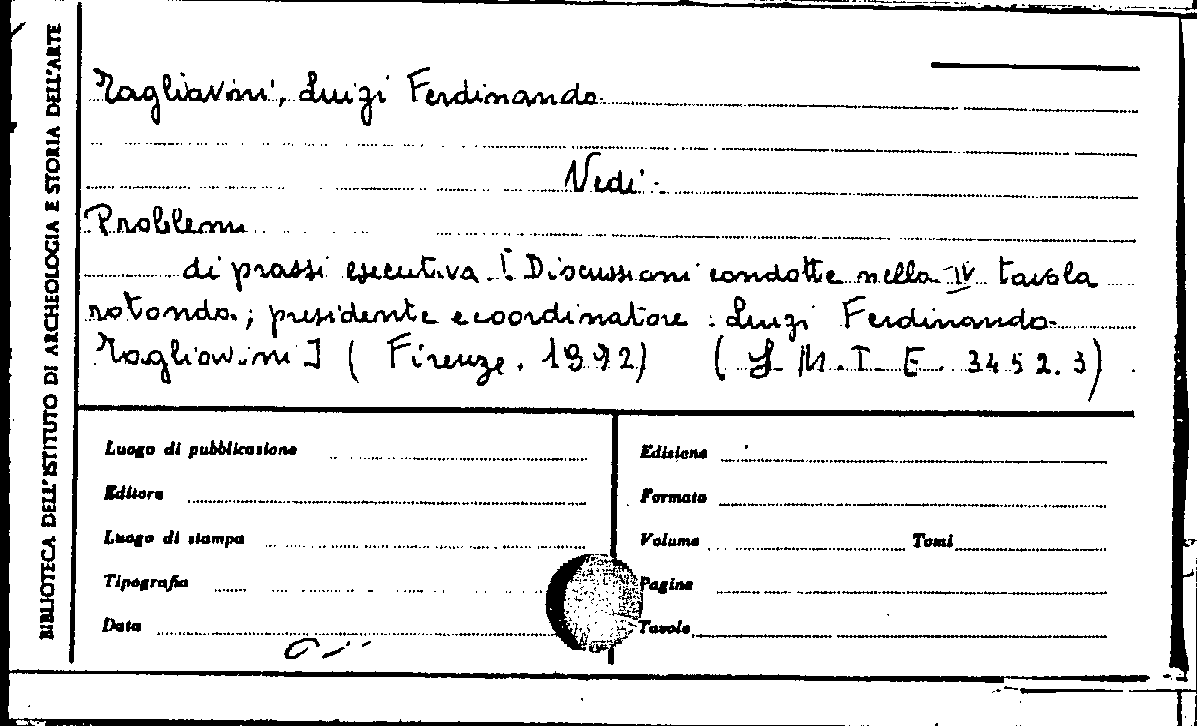 BIBLIOTECA DELL'ISTITUTO DI ARCHEOLOGIA E STORIA DELL'ARTE
Tagliavini, Luigi Ferdinando
Vedi:
Problemi
di prassi esecutiva [Discussioni condotte nella IV tavola
rotonda; presidente e coordinatore: Luigi Ferdinando
Tagliavini] (Firenze, 1972) (S.M.I.E. 3452.3)
Luogo di pubblicazione
Edizione
Editore
Formato
Luogo di stampa
Volume Tomi
Tipografia
Pagine
Data
Tavole